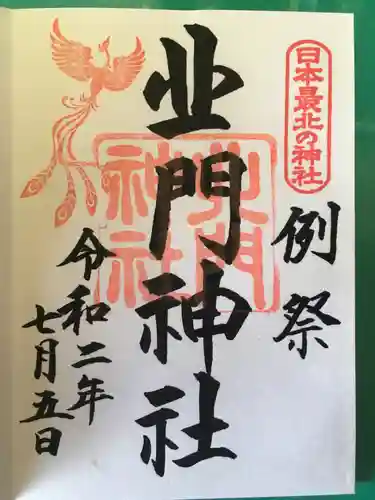 日本最北の神社
例祭
北門神社
北門神社
令和二年
七月五日